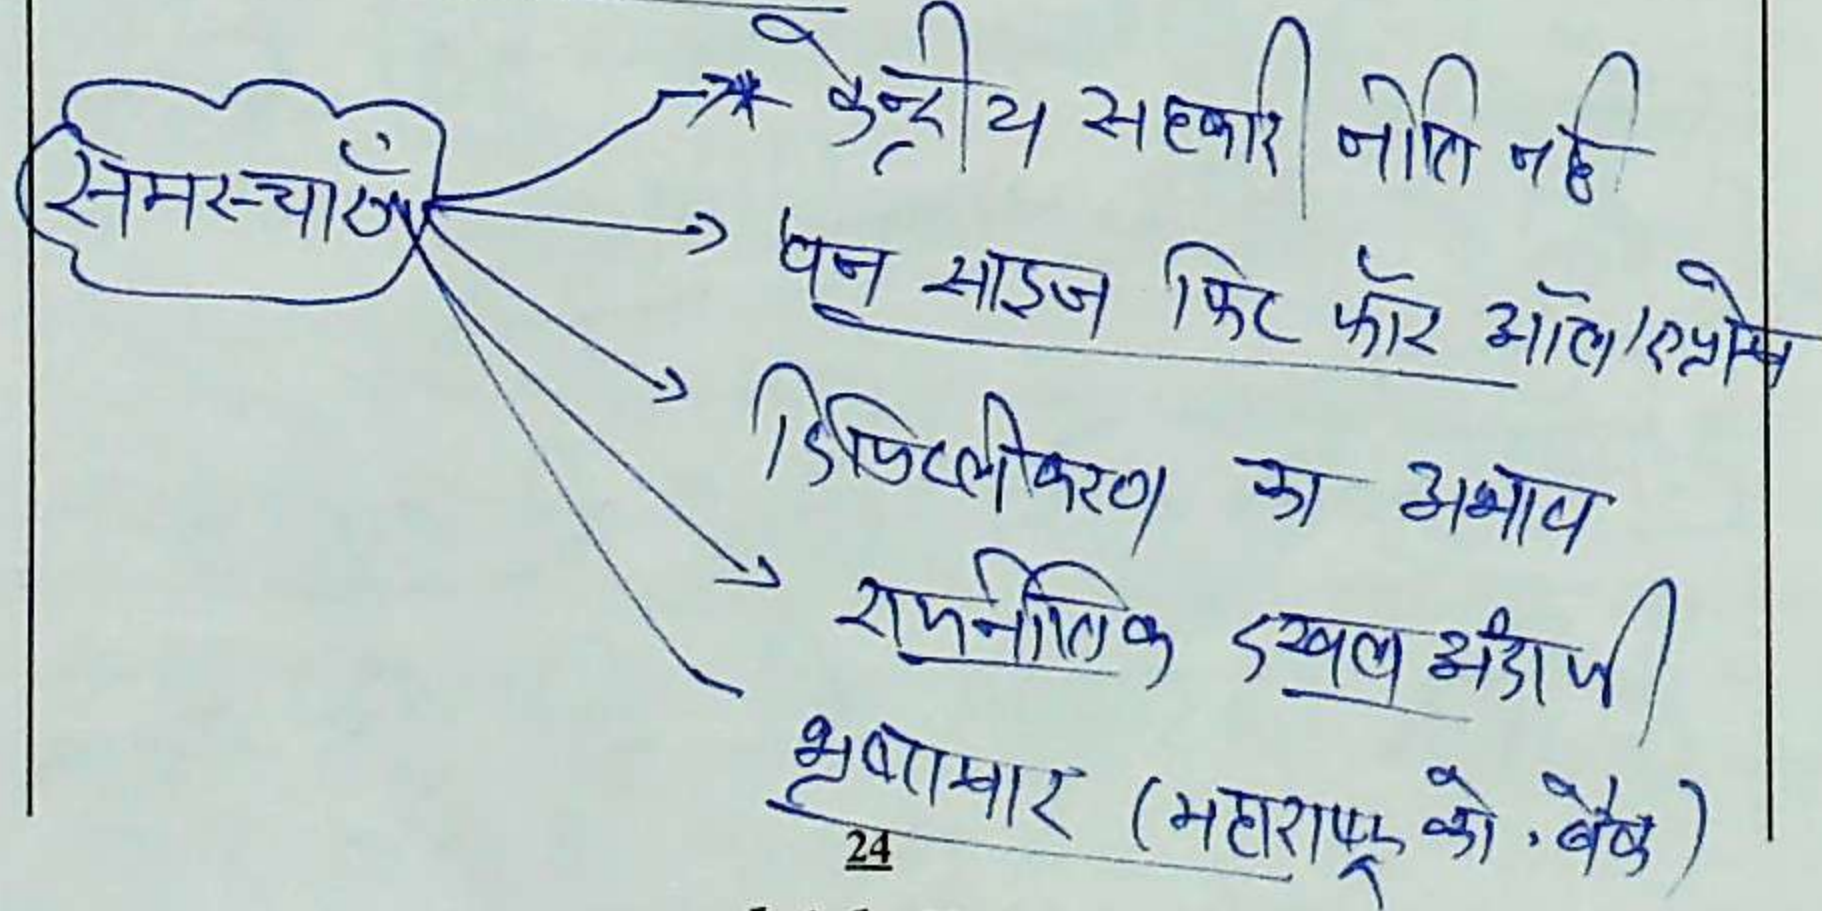 समस्याएँ
केन्द्रीय सहकारी नीति नहीं
वन साइज फिट फॉर ऑल/एप्रोच
डिजिटलीकरण का अभाव
राजनीतिक दखलअंदाजी
भ्रष्टाचार (महाराष्ट्र को. बैंक)
24